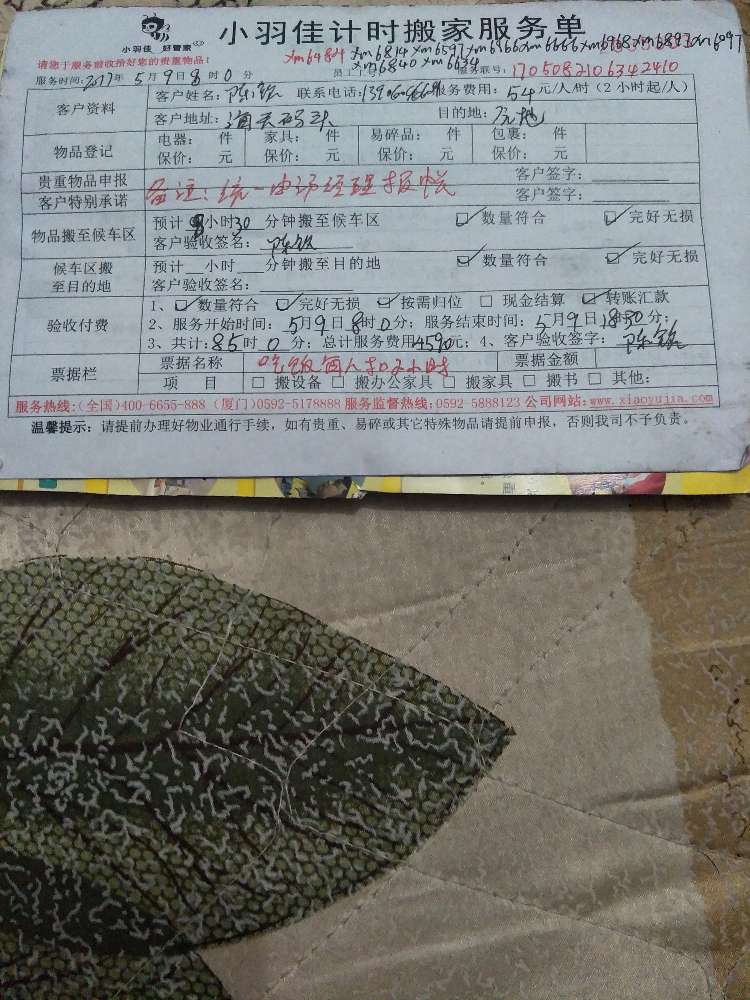 小羽佳计时搬家服务单
小羽佳 好管家
请您于服务前收拾好您的贵重物品!
xm6484 xm6814 xm6597 xm6966 xm6666 xm6968 xm6893 xm6097
xm6840 xm6634
服务时间:2017年5月9日8时0分 员工工号 服务联号:1705082106342410
客户资料
客户姓名: 联系电话: 服务费用:54元/人/时(2小时起/人)
客户地址: 码头 目的地:
物品登记
电器: 件 家具: 件 易碎品: 件 包裹: 件
保价: 元 保价: 元 保价: 元 保价: 元
贵重物品申报 客户签字:
备注:统一由 经理报
客户特别承诺 客户签字:
物品搬至候车区
预计8小时30分钟搬至候车区 数量符合 完好无损
客户验收签名:
候车区搬至目的地
预计 小时 分钟搬至目的地 数量符合 完好无损
客户验收签名:
验收付费
1、数量符合 完好无损 按需归位 现金结算 转账汇款
2、服务开始时间:5月9日8时0分;服务结束时间:5月9日18时30分;
3、共计:85时0分;总计服务费用4590元;4、客户验收签字:
票据栏
票据名称 吃饭每人扣2小时 票据金额
项 目 搬设备 搬办公家具 搬家具 搬书 其他:
服务热线:(全国)400-6655-888 (厦门)0592-5178888 服务监督热线:0592-5888123 公司网站:www.xiaoyujia.com
温馨提示:请提前办理好物业通行手续,如有贵重、易碎或其它特殊物品请提前申报,否则我司不予负责。